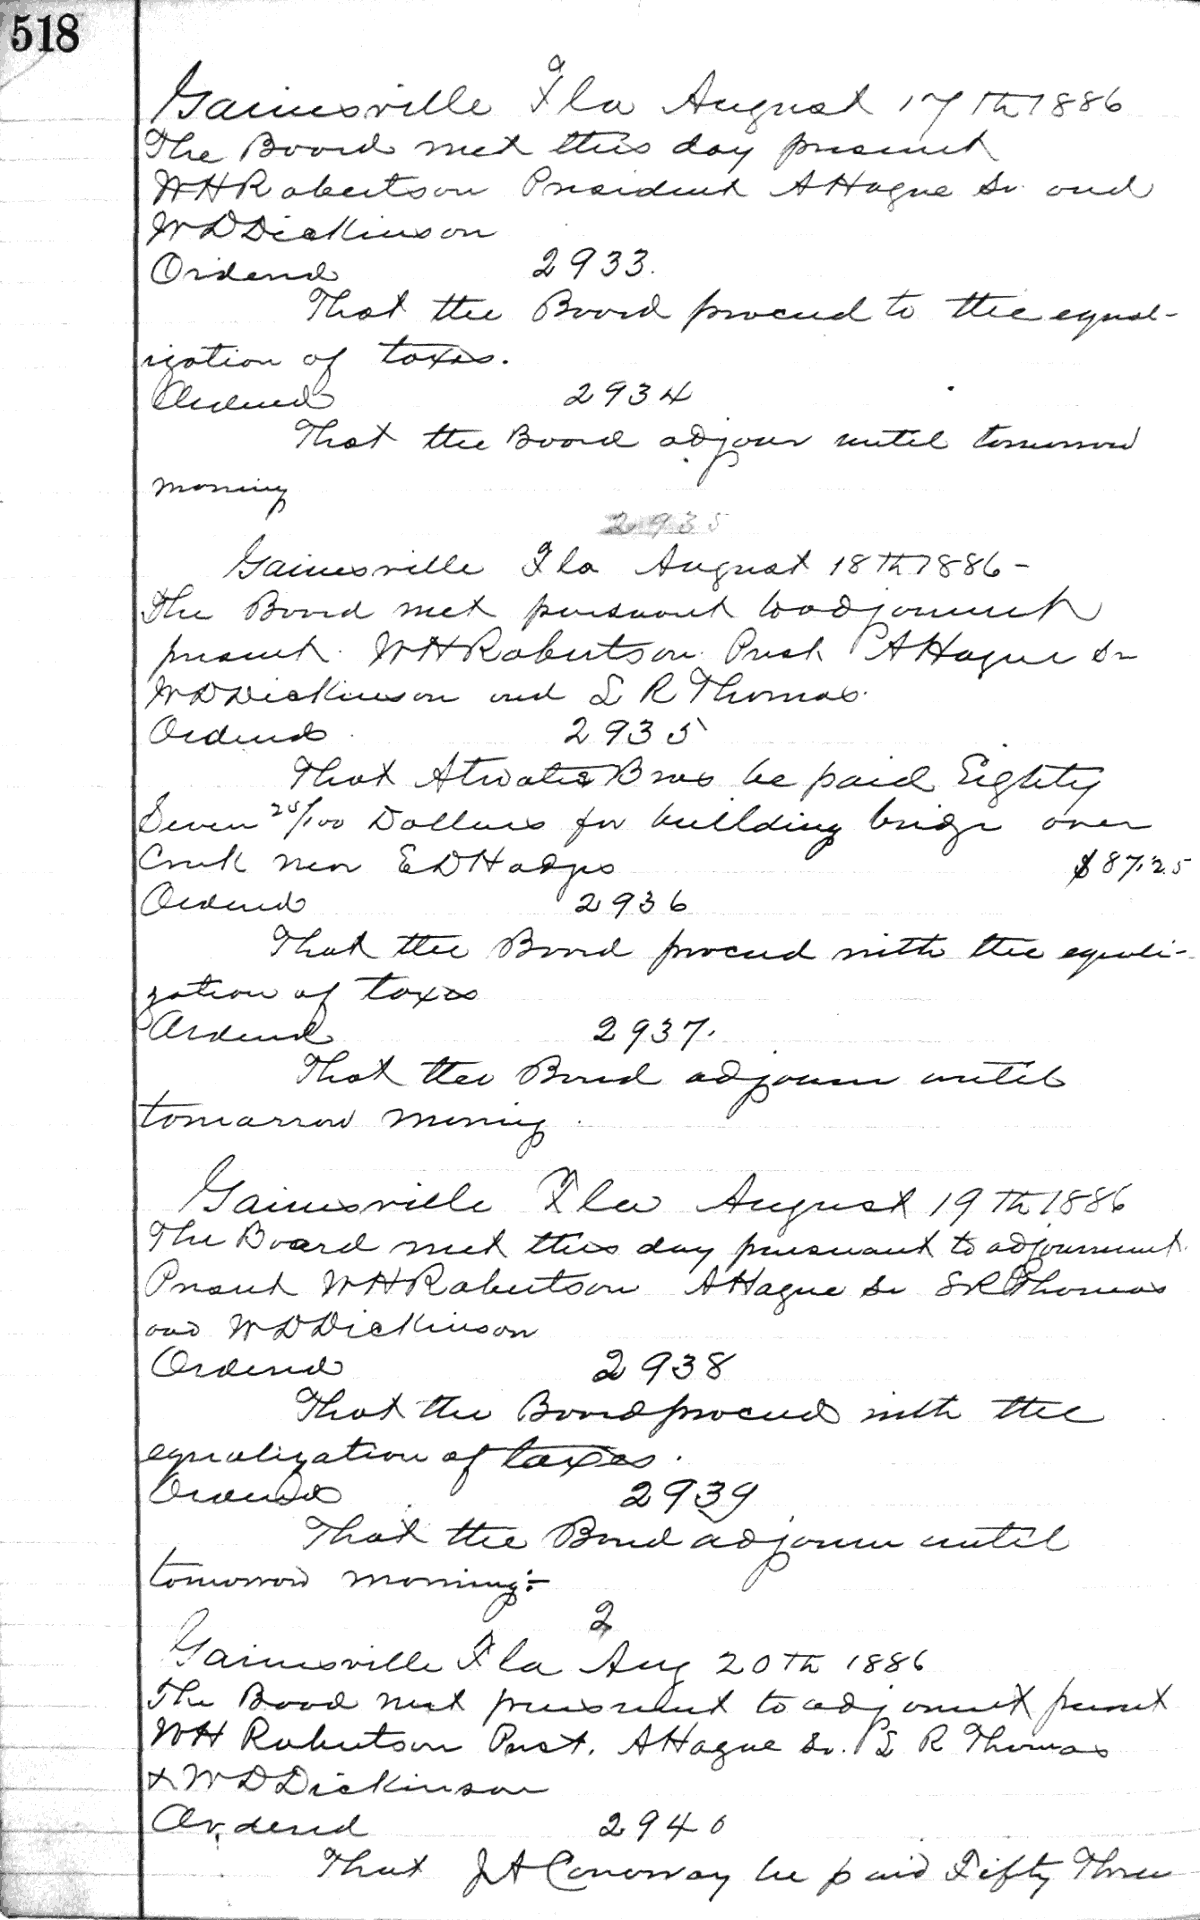 518
Gainesville Fla August 17th 1886
The Board met this day present
W H Robertson President A Hague Sr and
W D Dickinson
Ordered 2933.
That the Board proceed to the equal-
ization of taxes.
Ordered 2934
That the Board adjourn until tomorrow
morning
2935
Gainesville Fla August 18th 1886-
The Board met pursuant to adjournment
present W H Robertson Prest A Hague Sr
W D Dickinson and S R Thomas.
Ordered 2935
That Atwater Bros be paid Eighty
Seven 25/100 Dollars for building bridge over
Creek near E D Hodges $87.25
Ordered 2936
That the Board proceed with the equali-
zation of taxes
Ordered 2937.
That the Board adjourn until
tomorrow morning
Gainesville Fla August 19th 1886
The Board met this day pursuant to adjournment.
Present W H Robertson A Hague Sr S R Thomas
and W D Dickinson
Ordered 2938
That the Board proceed with the
equalization of taxes.
Ordered 2939
That the Board adjourn until
tomorrow morning:-
2
Gainesville Fla Aug 20th 1886
The Board met pursuant to adjournment present
W H Robertson Prest. A Hague Sr. S R Thomas
& W D Dickinson
Ordered 2940
That J A Conoway be paid Fifty Three